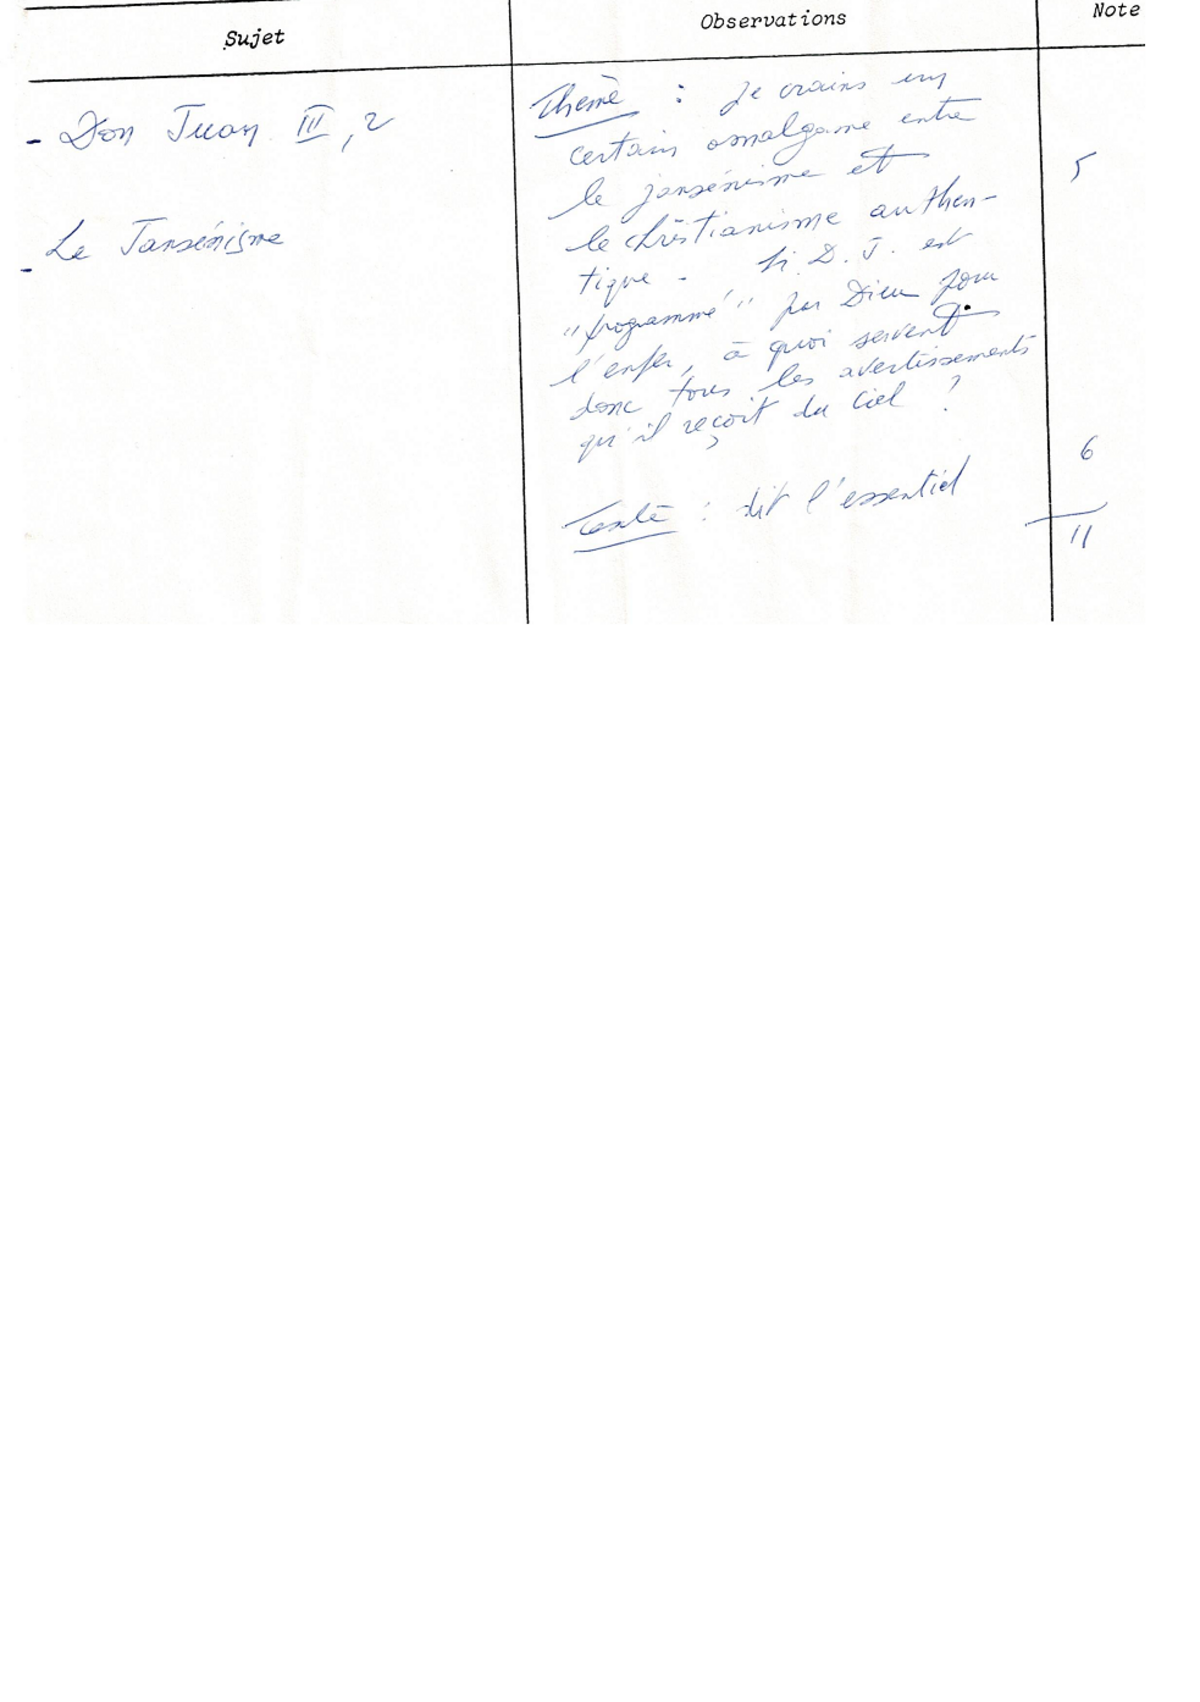 Sujet
Observations
Note
- Don Juan III, 2
- Le Jansénisme
Thème : Je crains un
certain amalgame entre
le jansénisme et
le christianisme authen-
tique. Si D. J. est
"programmé" par Dieu pour
l'enfer, à quoi servent
donc tous les avertissements
qu'il reçoit du Ciel ?
5
Texte : dit l'essentiel
6
11